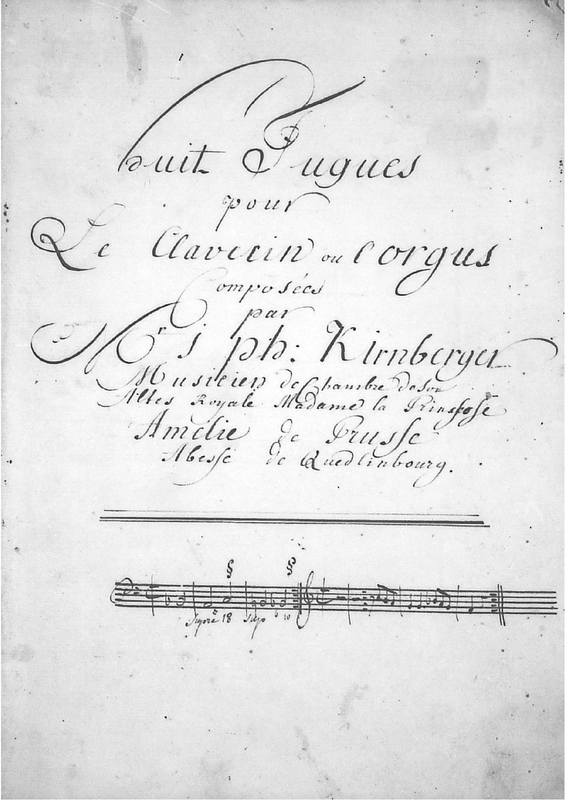 huit Fugues
pour
Le Clavecin ou l'orgus
Composées
par
Mr. j ph: Kirnberger
Musicien de Chambre de Son
Altes Royale Madame la
Amelie de Prusse
Abesse de Quedlinbourg.
§ §
18